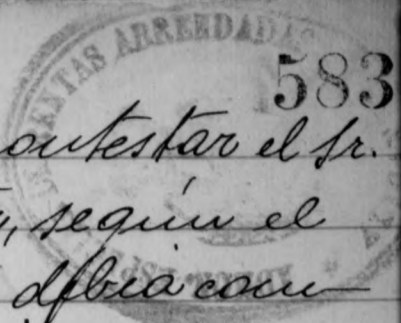 RENTAS ARRENDADAS
583
ontestar el Sr.
según el
debia com-